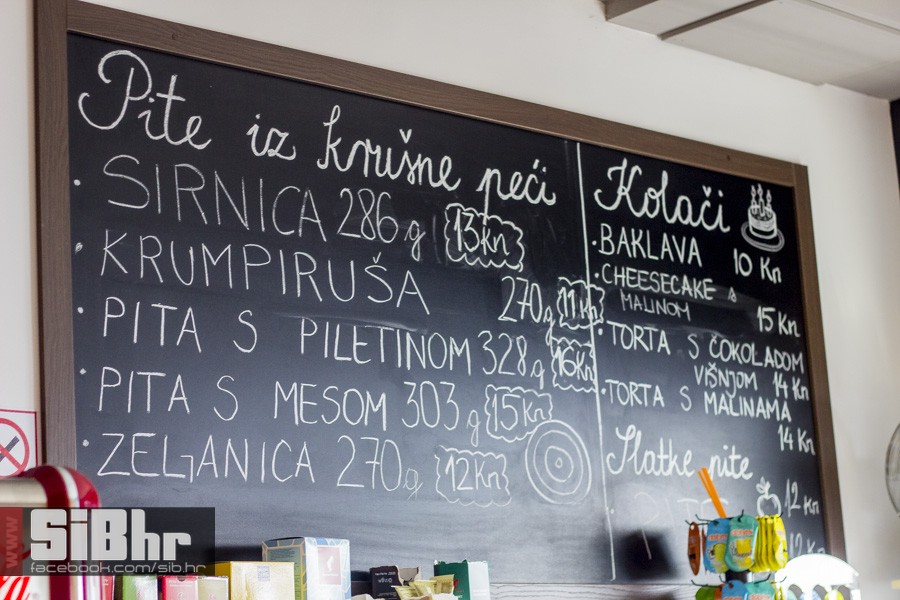 Pite iz krušne peći
• SIRNICA 286 g 13Kn
• KRUMPIRUŠA 270g 11Kn
• PITA S PILETINOM 328g 16Kn
• PITA S MESOM 303g 15Kn
• ZELJANICA 270g 12Kn
Kolači
• BAKLAVA 10 Kn
• CHEESECAKE s
MALINOM
15 Kn
• TORTA S ČOKOLADOM
VIŠNJOM 14 Kn
• TORTA S MALINAMA
14 Kn
Slatke pite
12 Kn
12 Kn
www
SiBhr
facebook.com/sib.hr